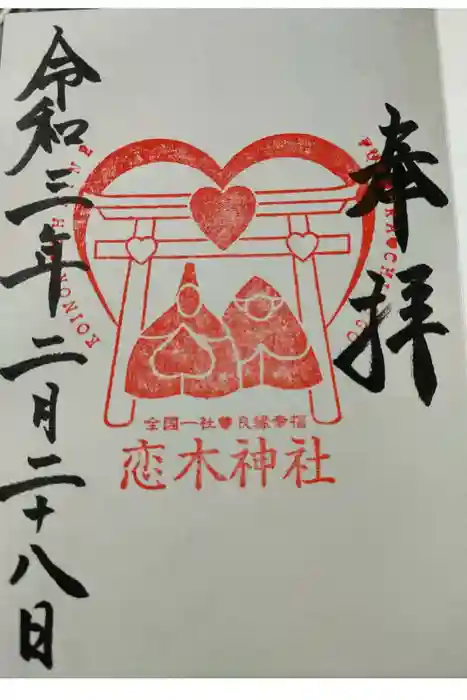 奉拝
KOINOKI SHRINE
FUKUOKA CHIKUGO
全国一社♥良縁幸福
恋木神社
令和三年二月二十八日